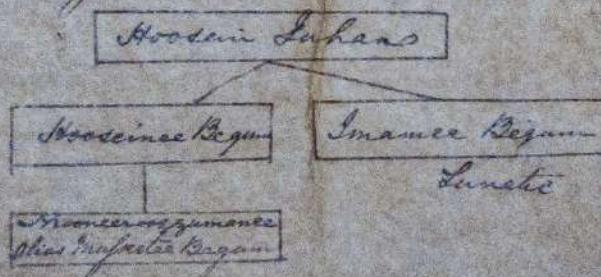 Hoosein Juhaas
Hooseinee Begum
Imamee Begum
Lunatic
Mooneeroozzumanee
alias Begum